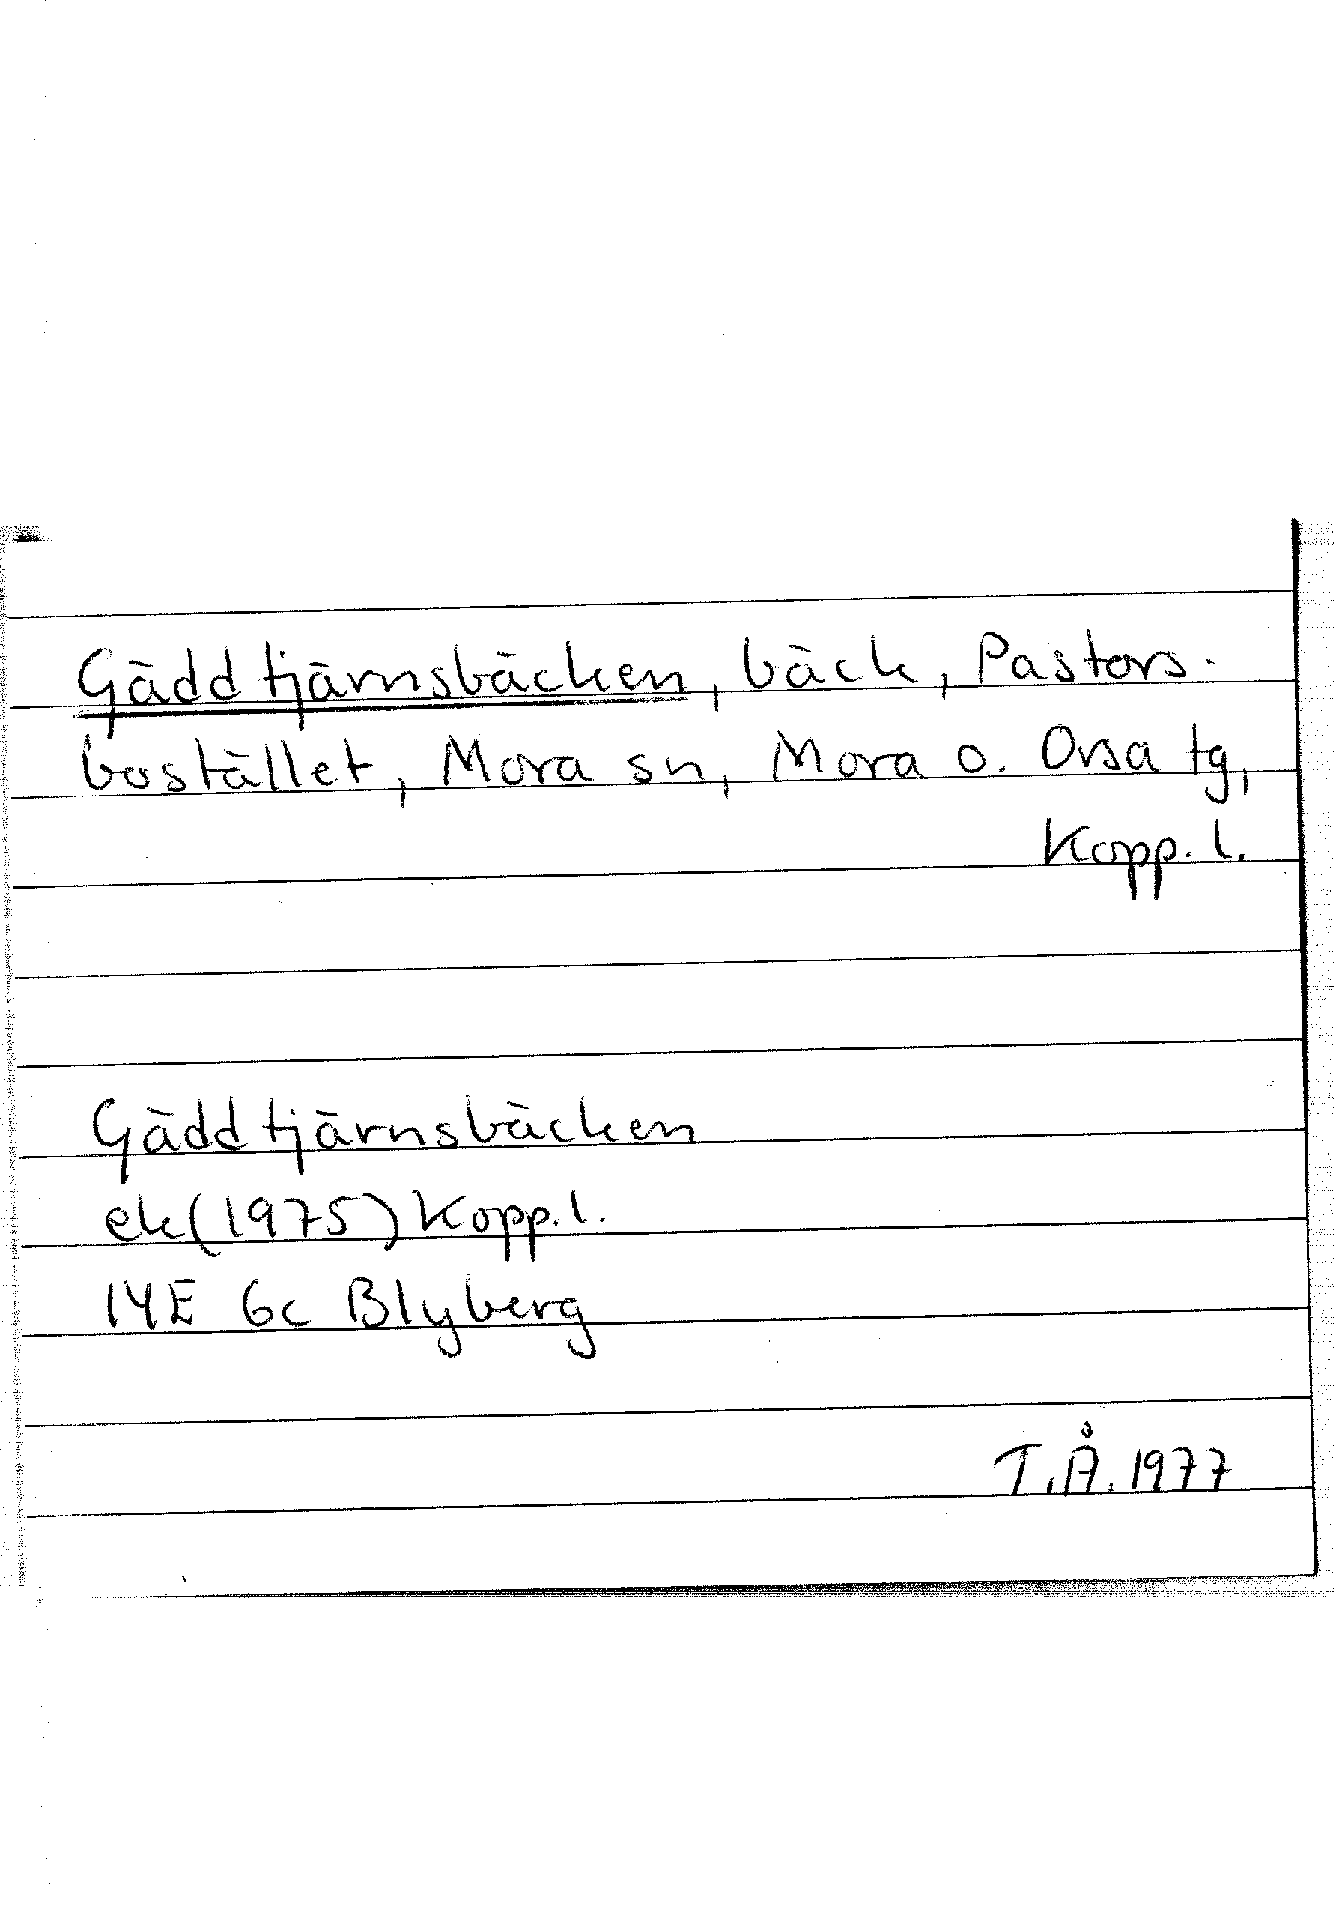 Gäddtjärnsbäcken, bäck, Pastors-
bostället, Mora sn, Mora o. Orsa tg,
Kopp. l.
Gäddtjärnsbäcken
ek(1975) Kopp. l.
14E 6c Blyberg
T.Å. 1977